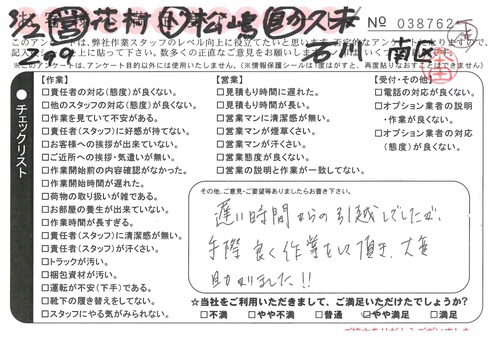 営 花村 松嶋 久末
№ 038762
299 石川 南区
このアンケートは、弊社作業スタッフのレベル向上に役立てたいと思います。
※このアンケートは、アンケート目的以外には使用いたしません。(※情報保護シールは1度はがすと、再度貼りなおすことはできません)
●チェックリスト
【作業】
□責任者の対応(態度)が良くない。
□他のスタッフの対応(態度)が良くない。
□作業を見ていて不安がある。
□責任者(スタッフ)に好感が持てない。
□お客様への挨拶が出来ていない。
□ご近所への挨拶・気遣いが無い。
□作業開始前の内容確認がなかった。
□作業開始時間が遅れた。
□荷物の取り扱いが雑である。
□お部屋の養生が出来ていない。
□作業時間が長すぎる。
□責任者(スタッフ)に清潔感が無い。
□責任者(スタッフ)が汗くさい。
□トラックが汚い。
□梱包資材が汚い。
□運転が不安(下手)である。
□靴下の履き替えをしてない。
□スタッフにやる気がみられない。
【営業】
□見積もり時間に遅れた。
□見積もり時間が長い。
□営業マンに清潔感が無い。
□営業マンが煙草くさい。
□営業マンが汗くさい。
□営業態度が良くない。
□営業の説明と作業が一致してない。
【受付・その他】
□電話の対応が良くない。
□オプション業者の説明
・作業が良くない。
□オプション業者の対応
(態度)が良くない。
その他、ご意見・ご要望等ありましたらお書き下さい。
遅い時間からの引越しでしたが、
手際良く作業をして頂き、大変
助かりました!!
☆当社をご利用いただきまして、ご満足いただけたでしょうか?
□不満 □やや不満 □普通 ☑やや満足 □満足
ご協力ありがとうございました